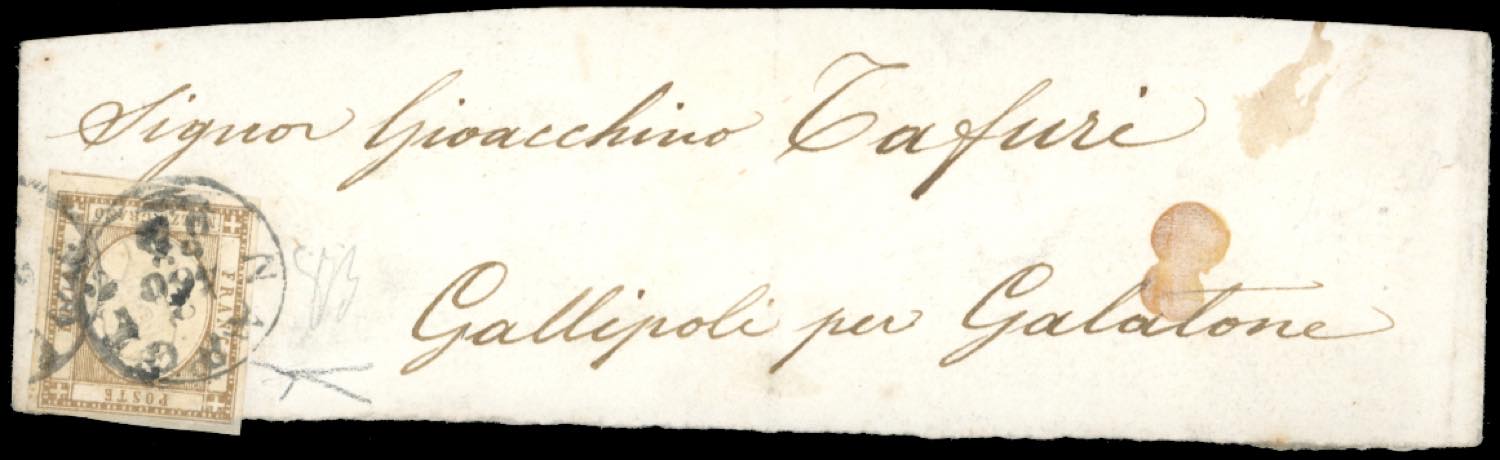 Signor Gioacchino Tafuri
Gallipoli per Galatone
MEZZO GRANO
FRANCO
POSTE